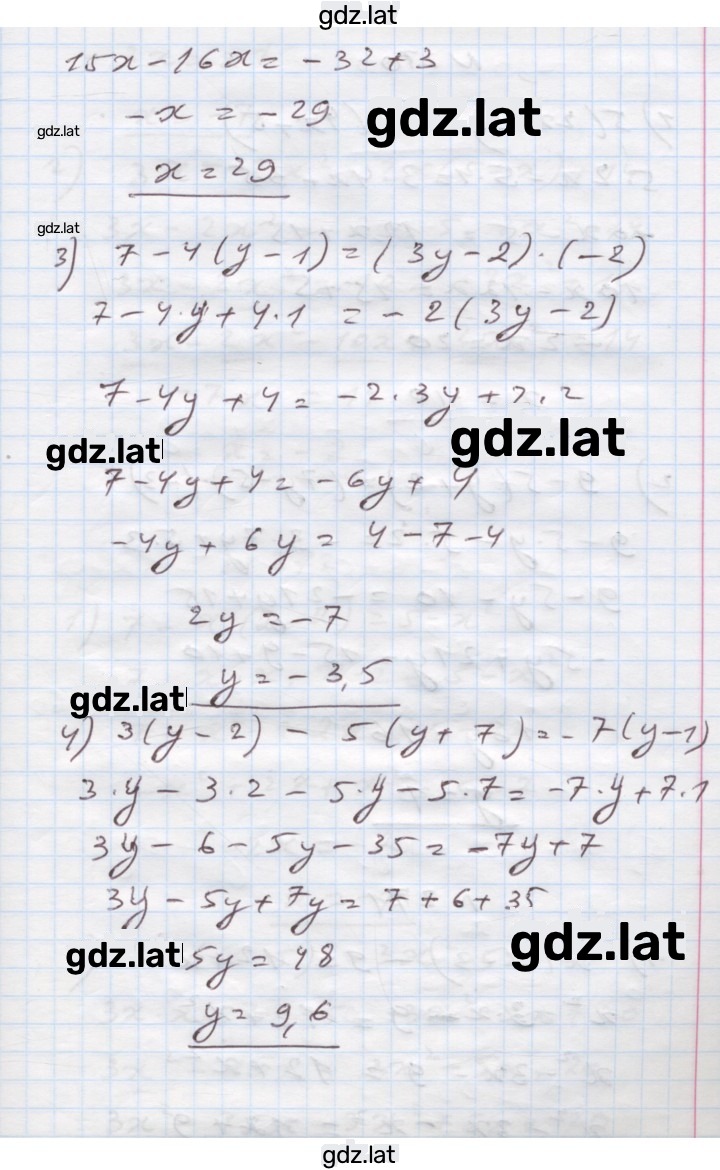 gdz.lat
15x - 16x = - 32 + 3
- x = - 29
gdz.lat
gdz.lat
x = 29
gdz.lat
3) 7 - 4(y - 1) = (3y - 2) · (-2)
7 - 4·y + 4·1 = - 2(3y - 2)
7 - 4y + 4 = - 2·3y + 2·2
gdz.lat
gdz.lat
7 - 4y + 4 = - 6y + 4
- 4y + 6y = 4 - 7 - 4
2y = - 7
y = - 3,5
gdz.lat
4) 3(y - 2) - 5(y + 7) = - 7(y - 1)
3·y - 3·2 - 5·y - 5·7 = -7·y + 7·1
3y - 6 - 5y - 35 = -7y + 7
3y - 5y + 7y = 7 + 6 + 35
gdz.lat
gdz.lat
5y = 48
y = 9,6
gdz.lat